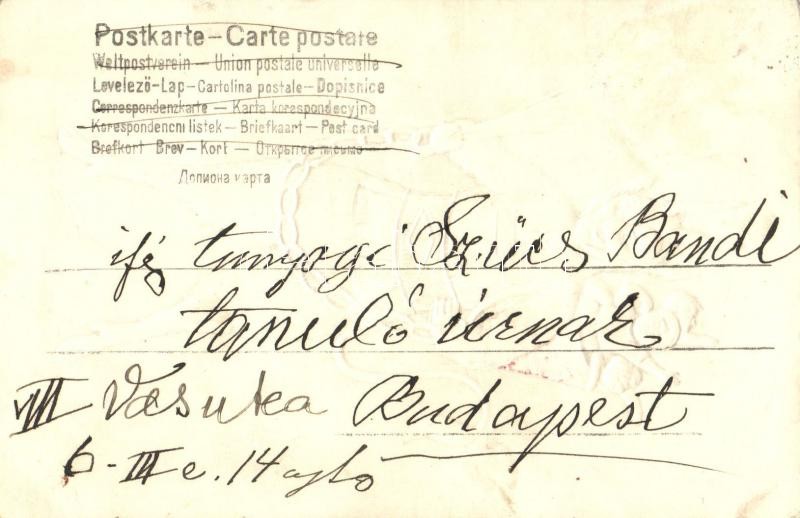 Postkarte – Carte postale
Weltpostverein – Union postale universelle
Levelező-Lap – Cartolina postale – Dopisnice
Correspondenzkarte – Karta korespondecyjna
Korespondencni listek – Briefkaart – Post card
Brefkort Brev – Kort – Открытое письмо
Дописна карта
ifj tunyogi Szücs Bandi
tanuló úrnak
VIII Vas utca Budapest
6 – III e. 14 ajtó